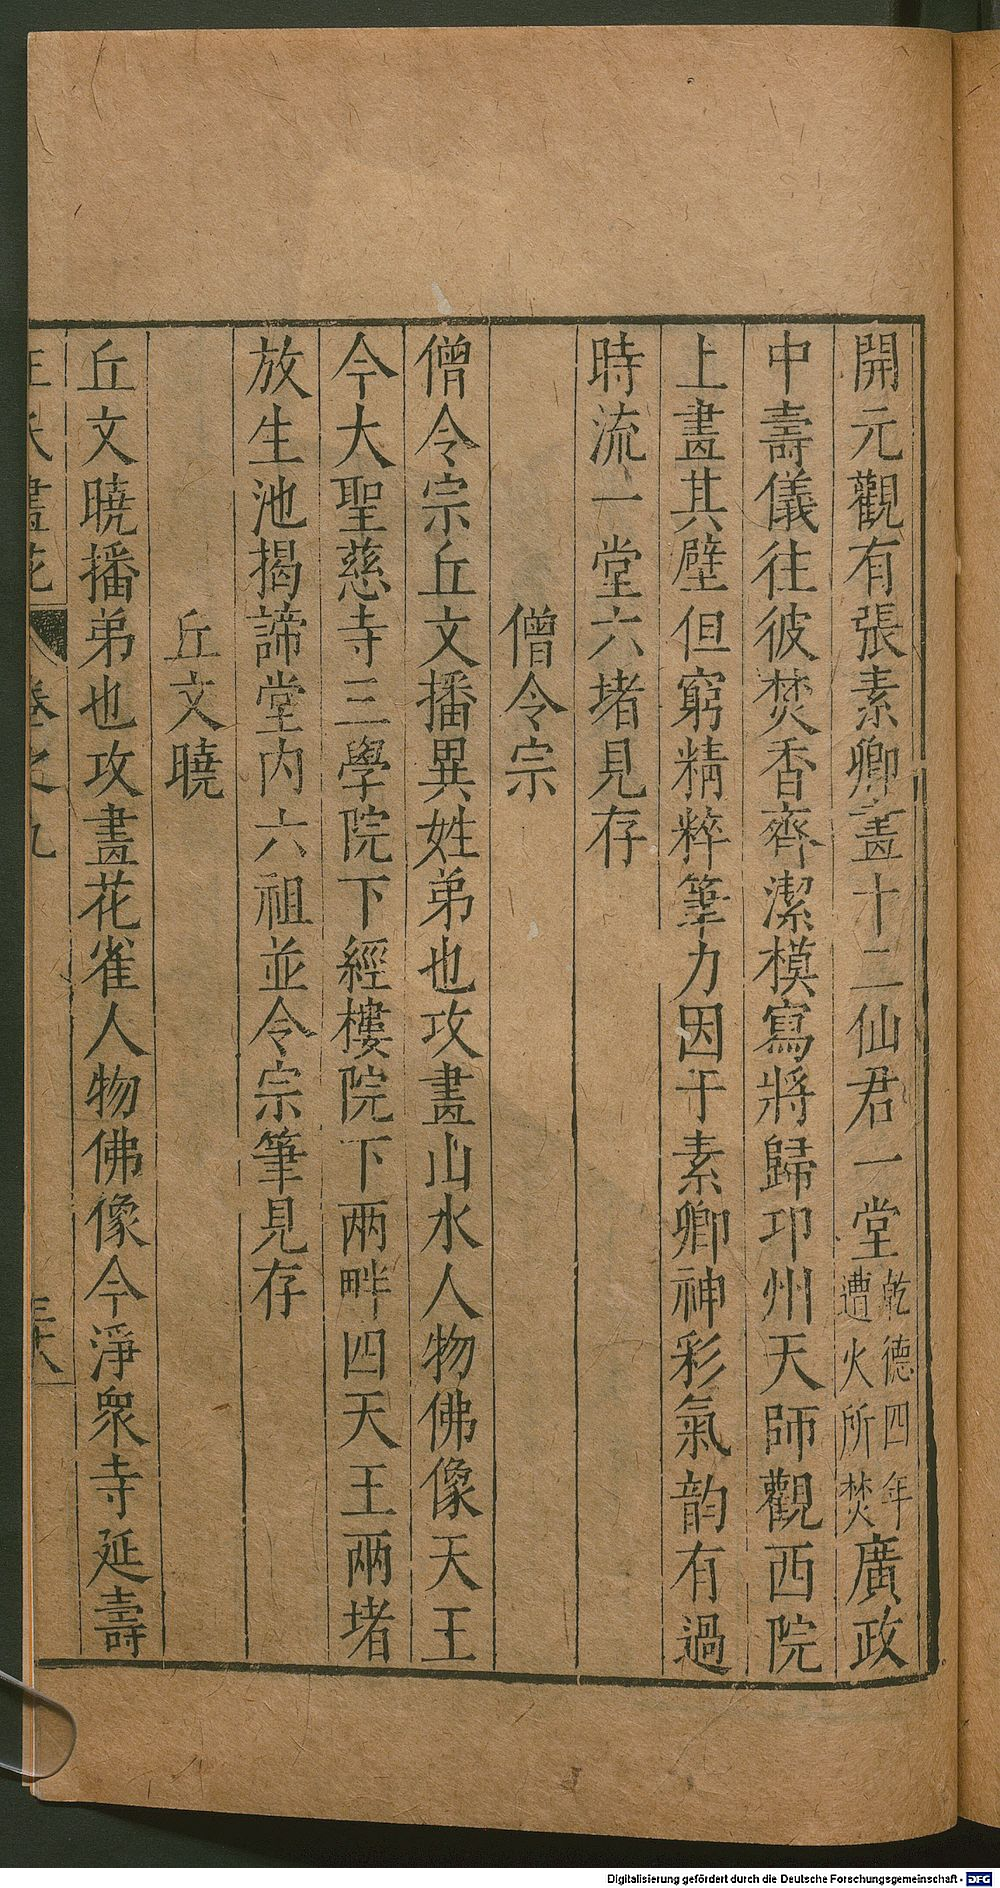 開元觀有張素卿畫十二仙君一堂乾德四年遭火所焚廣政
中壽儀往彼焚香齊潔模寫將歸邛州天師觀西院
上畫其壁但窮精粹筆力因于素卿神彩氣韵有過
時流一堂六堵見存
僧令宗
僧令宗丘文播異姓弟也攻畫山水人物佛像天王
今大聖慈寺三學院下經樓院下兩畔四天王兩堵
放生池揭諦堂內六祖並令宗筆見存
丘文曉
丘文曉播弟也攻畫花雀人物佛像今淨眾寺延壽
卷之九
三十八
Digitalisierung gefördert durch die Deutsche Forschungsgemeinschaft - DFG